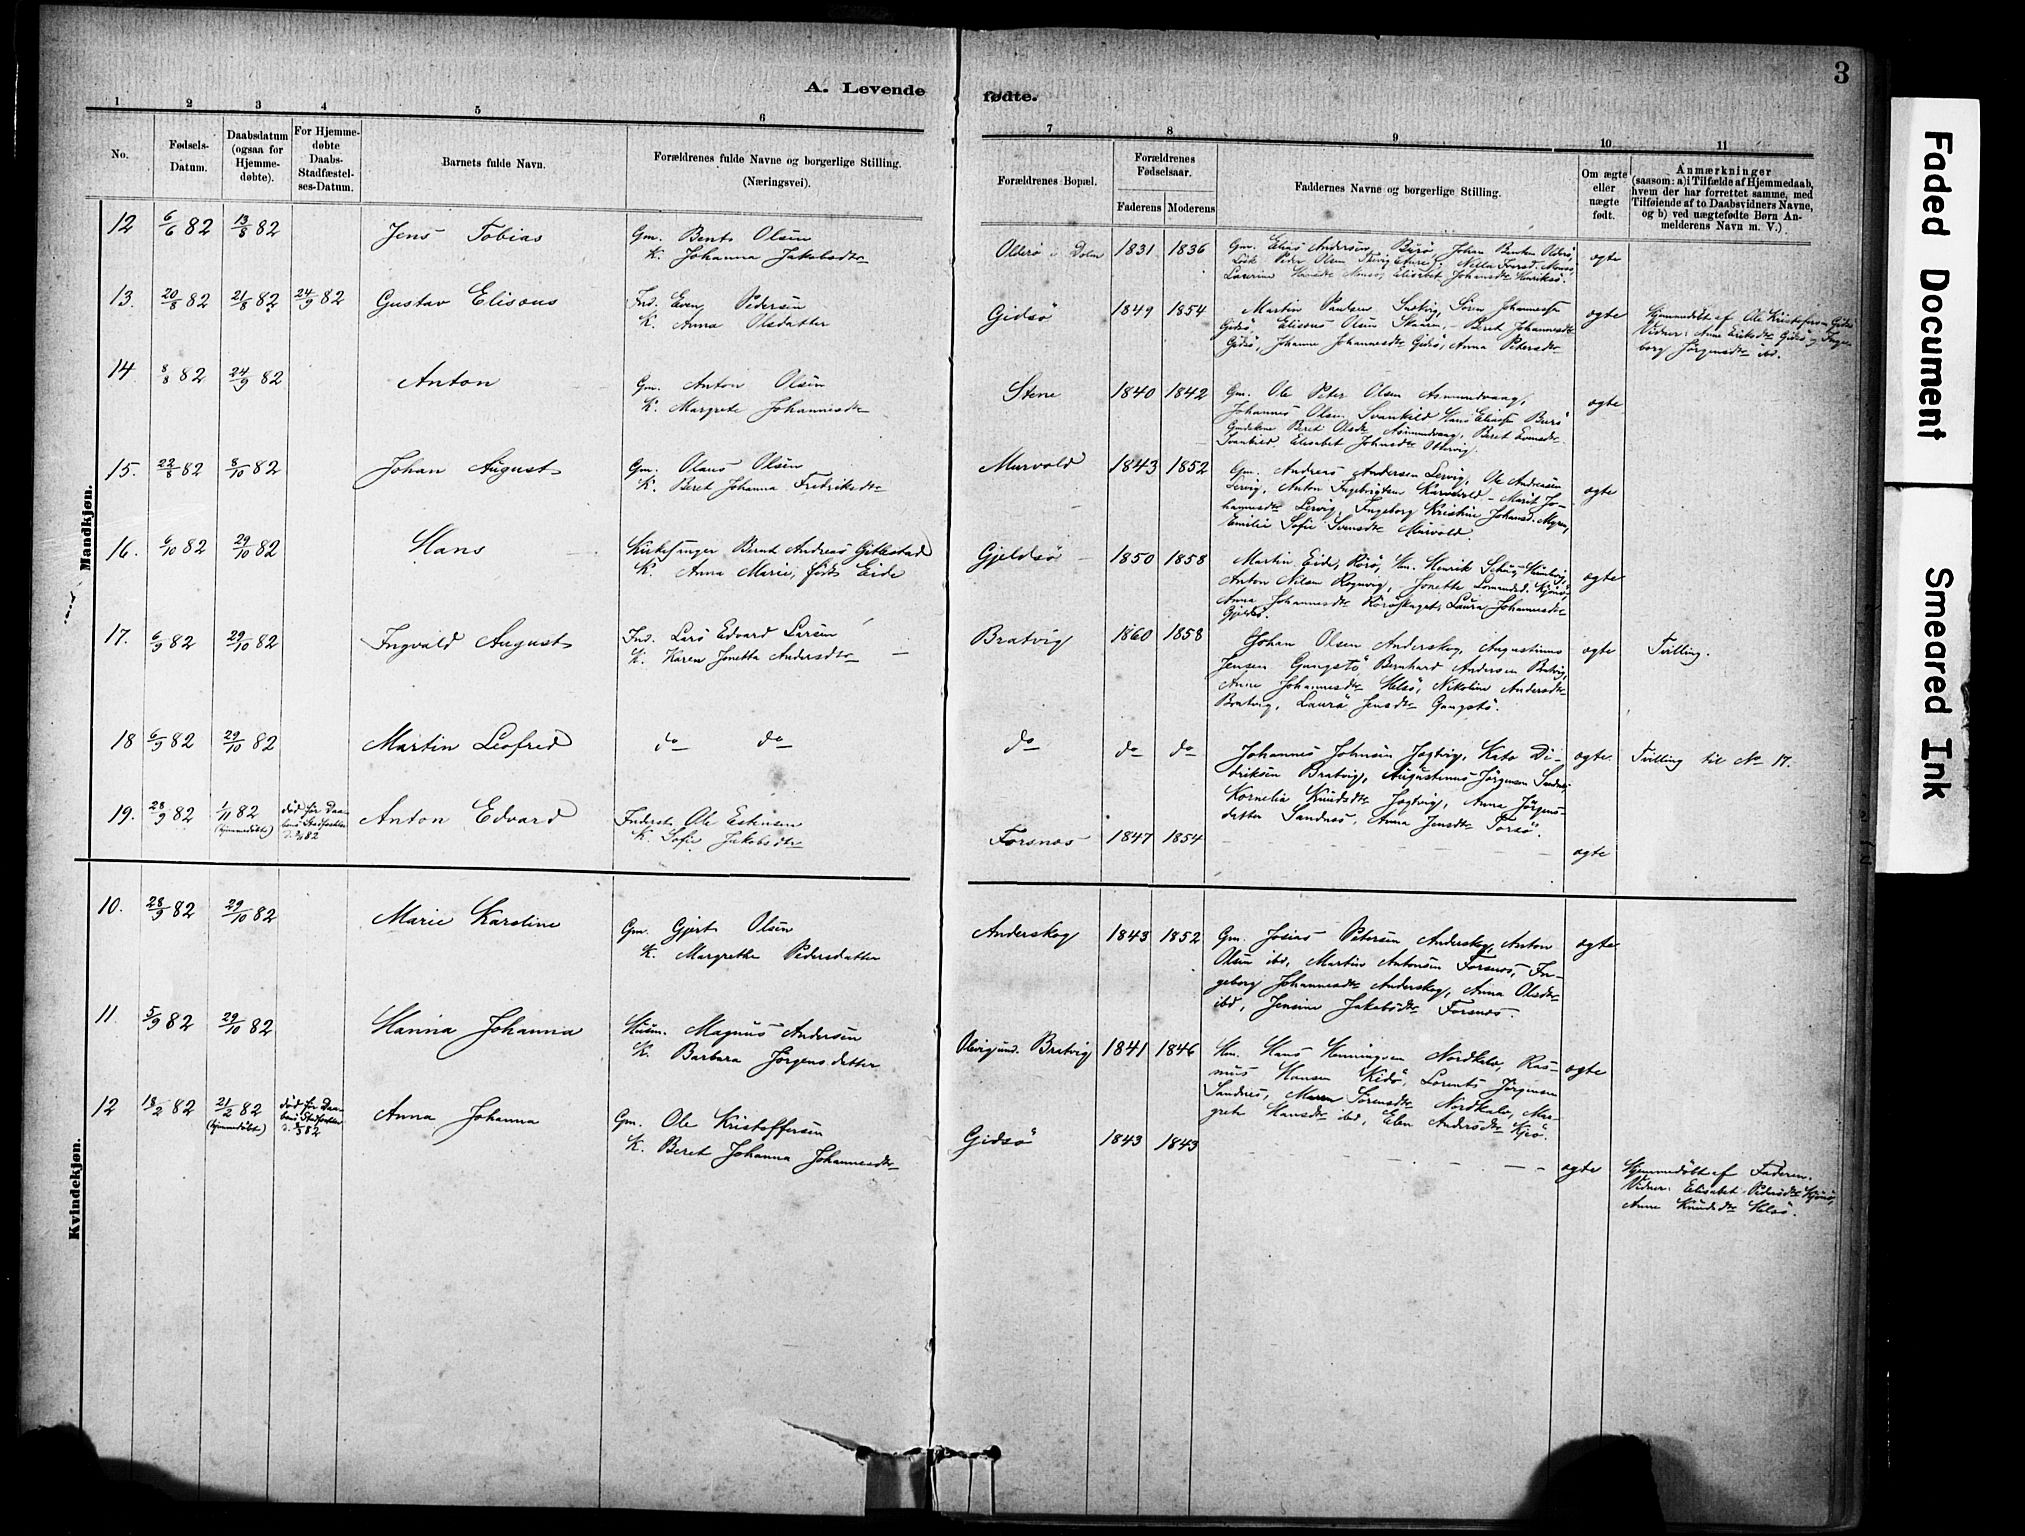 3
A. Levende
fødte.
1 2 3 4 5 6
7 8 9 10 11
No.
Fødsels-
Datum.
Daabsdatum
(ogsaa for
Hjemme-
døbte).
For Hjemme-
døbte
Daabs-
Stadfæstel-
ses-Datum.
Barnets fulde Navn.
Forældrenes fulde Navne og borgerlige Stilling.
(Næringsvei).
Forældrenes Bopæl.
Forældrenes
Fødselsaar.
Faderens Moderens
Faddernes Navne og borgerlige Stilling.
Om ægte
eller
uægte
født.
Anmærkninger
(saasom: a) i Tilfælde af Hjemmedaab,
hvem der har forrettet samme, med
Tilføiende af to Daabsvidners Navne,
og b) ved uægtefødte Børn An-
melderens Navn m. V.)
Mandkjøn.
12 6/6 82 13/8 82 Jens Tobias
Gm. Bent Olsen
K. Johanna Jakobsdtr
1831 1836
Gm. Elias Andersen, Burø, Johan Bentsen
Peder Olsen
ægte
13. 20/8 82 21/8 82 24/9 82 Gustav Eliseus
Ind. Even Pedersen
K. Anna Olsdatter
Gidsø 1849 1854
Martin Paulsen Johannessen
Gidsø, Eliseus Olsen Skauen, Beret Johannesdtr
Gidsø, Johanna Johannesdtr Gidsø, Anna Petersdtr
ægte
Hjemmedøbt af Ole Kristofersen Gidsø
Vidner: Anne Eriksdtr Gidsø og Inge-
borg Jørgensdtr ibd.
14. 8/8 82 24/9 82 Anton
Gm. Anton Olsen
K. Margrete Johannesdtr
Stene 1840 1842
Gm. Ole Peter Olsen Asmundvaag,
Johannes Olsen Svankild Hans Eliassen Burø
Gudskone Beret Olsdtr Asmundvaag, Beret Evensdtr
Svankild Elisabet Johnsdtr
ægte
15. 22/8 82 8/10 82 Johan August
Gm. Olaus Olsen
K. Beret Johanna Fredriksdtr
Murvold 1843 1852
Gm. Andreas Andersen Lervig, Ole Andersen
Lervig, Anton Ingebrigtsen Kårvold - Marit Jo-
hannesdtr Lervig, Ingeborg Kristine Johansd. Myren,
Emilie Sofie Svensdtr Murvold.
ægte
16. 6/10 82 29/10 82 Hans
Kirkesanger Bernt Andreas Gillestad
K. Anna Marie, født Eide
Gjeldsø 1850 1858
Martin Eide, Rørø, Hm. Henrik
Anton Nilsen Rognvig, Jonette
Anna Johannesdtr Laura Johannesdtr
Gjeldsø.
ægte
17. 6/9 82 29/10 82 Ingvald August
Ind. Lars Edvard Larsen
K. Karen Jonetta Andersdtr
Bratvig 1860 1858
Johan Olsen Anderskog, Augustinus
Jensen Gangstø, Bernhard Andersen Bratvig,
Anne Johannesdtr Helsø, Nikoline Andersdtr
Bratvig, Laura Jensdtr Gangstø.
ægte Tvilling.
18 6/9 82 29/10 82 Martin Leofred
do do
do do do
Johannes Johnsen Jøgtvig, Kato Di-
driksen Bratvig, Augustinus Jørgensen Sandnes,
Kornelia Knudsdtr Jøgtvig, Anna Jørgens-
datter Sandnes, Anna Jensdtr Torsø.
ægte. Tvilling til No 17.
19. 28/9 82 1/11 82 (hjemmedøbt) død før Daa-
bens Stadfæstelse
Anton Edvard
Inderst Ole Estensen
K. Sofie Jakobsdtr
Forsnes 1847 1854 ægte
Kvindekjøn.
10. 28/9 82 29/10 82 Marie Karoline
Gm. Gjert Olsen
K. Margrethe Pedersdatter
Anderskog 1843 1852
Gm. Josias Petersen Anderskog, Anton
Olsen ibd, Martin Antonsen Forsnes, In-
geborg Johannesdtr Anderskog, Anna Olsdtr
ibd, Jensine Jakobsdtr Forsnes
ægte
11. 5/9 82 29/10 82 Hanna Johanna
Husm. Magnus Andersen
K. Barbara Jørgensdatter
Olvigsund. Bratvig 1841 1846
Hm. Hans Henningsen Nordhals, Ras-
mus Hansen Kidø, Lorents Jørgensen
Sandnes, Maren Sørensdtr Nordhals, Mar-
grete Hansdtr ibd, Elen Andersdtr Kjø.
ægte
12 18/2 82 21/2 82 (hjemmedøbt) død før Daa-
bens Stadfæstelse
Anna Johanna
Gm. Ole Kristoffersen
K. Beret Johanna Johannesdtr
Gidsø 1843 1843 ægte
Hjemmedøbt af Faderen.
Vidner: Elisabet Pedersdtr
Anne Knudsdtr Helsø.
Faded Document
Smeared Ink